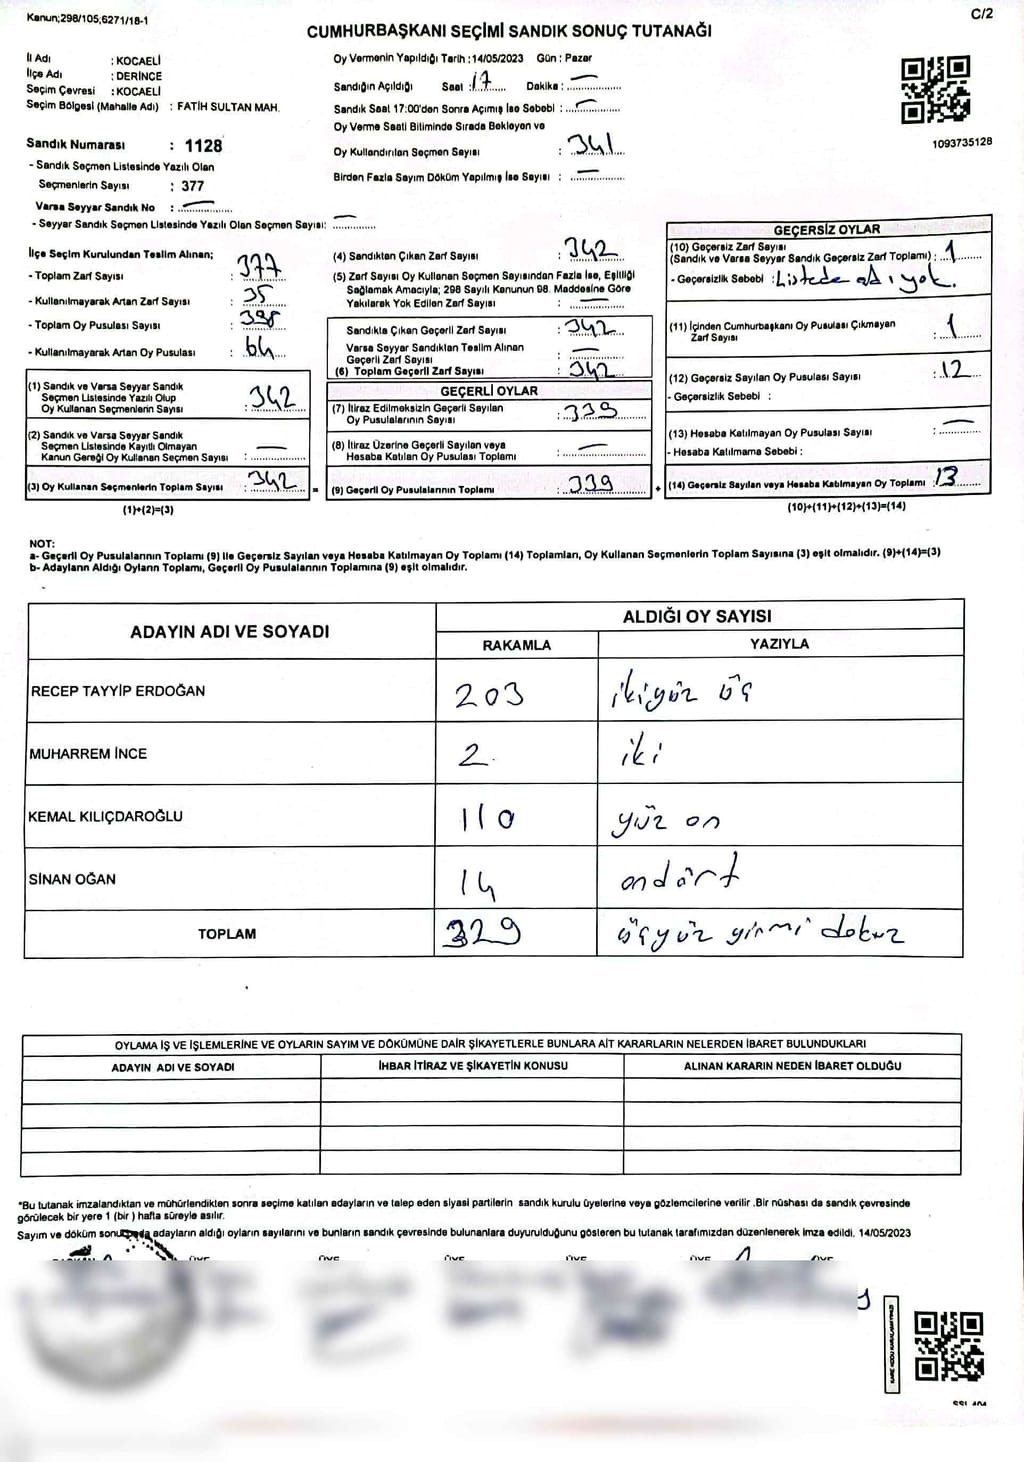 Kanun;298/105,6271/18-1
C/2
CUMHURBAŞKANI SEÇİMİ SANDIK SONUÇ TUTANAĞI
İl Adı : KOCAELİ
İlçe Adı : DERİNCE
Seçim Çevresi : KOCAELİ
Seçim Bölgesi (Mahalle Adı) : FATİH SULTAN MAH.
Sandık Numarası : 1128
- Sandık Seçmen Listesinde Yazılı Olan
Seçmenlerin Sayısı : 377
Varsa Seyyar Sandık No :
- Seyyar Sandık Seçmen Listesinde Yazılı Olan Seçmen Sayısı:
Oy Vermenin Yapıldığı Tarih : 14/05/2023 Gün : Pazar
Sandığın Açıldığı Saat : 17 Dakika :
Sandık Saat 17:00'den Sonra Açımış İse Sebebi :
Oy Verme Saati Bitiminde Sırada Bekleyen ve
Oy Kullandırılan Seçmen Sayısı : 341
Birden Fazla Sayım Döküm Yapılmış İse Sayısı :
1093735128
İlçe Seçim Kurulundan Teslim Alınan;
- Toplam Zarf Sayısı : 377
- Kullanılmayarak Artan Zarf Sayısı : 35
- Toplam Oy Pusulası Sayısı : 398
- Kullanılmayarak Artan Oy Pusulası : 64
(1) Sandık ve Varsa Seyyar Sandık
Seçmen Listesinde Yazılı Olup
Oy Kullanan Seçmenlerin Sayısı : 342
(2) Sandık ve Varsa Seyyar Sandık
Seçmen Listesinde Kayıtlı Olmayan
Kanun Gereği Oy Kullanan Seçmen Sayısı :
(3) Oy Kullanan Seçmenlerin Toplam Sayısı : 342
(1)+(2)=(3)
(4) Sandıktan Çıkan Zarf Sayısı : 342
(5) Zarf Sayısı Oy Kullanan Seçmen Sayısından Fazla İse, Eşitliği
Sağlamak Amacıyla; 298 Sayılı Kanunun 98. Maddesine Göre
Yakılarak Yok Edilen Zarf Sayısı :
Sandıkta Çıkan Geçerli Zarf Sayısı : 342
Varsa Seyyar Sandıktan Teslim Alınan
Geçerli Zarf Sayısı :
(6) Toplam Geçerli Zarf Sayısı : 342
=
GEÇERLİ OYLAR
(7) İtiraz Edilmeksizin Geçerli Sayılan
Oy Pusulalarının Sayısı : 339
(8) İtiraz Üzerine Geçerli Sayılan veya
Hesaba Katılan Oy Pusulası Toplamı :
(9) Geçerli Oy Pusulalarının Toplamı : 339
+
GEÇERSİZ OYLAR
(10) Geçersiz Zarf Sayısı
(Sandık ve Varsa Seyyar Sandık Geçersiz Zarf Toplamı) : 1
- Geçersizlik Sebebi : Listede adı yok.
(11) İçinden Cumhurbaşkanı Oy Pusulası Çıkmayan
Zarf Sayısı : 1
(12) Geçersiz Sayılan Oy Pusulası Sayısı : 12
- Geçersizlik Sebebi :
(13) Hesaba Katılmayan Oy Pusulası Sayısı :
- Hesaba Katılmama Sebebi :
(14) Geçersiz Sayılan veya Hesaba Katılmayan Oy Toplamı : 13
(10)+(11)+(12)+(13)=(14)
NOT:
a- Geçerli Oy Pusulalarının Toplamı (9) ile Geçersiz Sayılan veya Hesaba Katılmayan Oy Toplamı (14) Toplamları, Oy Kullanan Seçmenlerin Toplam Sayısına (3) eşit olmalıdır. (9)+(14)=(3)
b- Adayların Aldığı Oyların Toplamı, Geçerli Oy Pusulalarının Toplamına (9) eşit olmalıdır.
ADAYIN ADI VE SOYADI
ALDIĞI OY SAYISI
RAKAMLA YAZIYLA
RECEP TAYYİP ERDOĞAN 203 ikiyüz üç
MUHARREM İNCE 2 iki
KEMAL KILIÇDAROĞLU 110 yüz on
SİNAN OĞAN 14 ondört
TOPLAM 329 üçyüz yirmi dokuz
OYLAMA İŞ VE İŞLEMLERİNE VE OYLARIN SAYIM VE DÖKÜMÜNE DAİR ŞİKAYETLERLE BUNLARA AİT KARARLARIN NELERDEN İBARET BULUNDUKLARI
ADAYIN ADI VE SOYADI İHBAR İTİRAZ VE ŞİKAYETİN KONUSU ALINAN KARARIN NEDEN İBARET OLDUĞU
*Bu tutanak imzalandıktan ve mühürlendikten sonra seçime katılan adayların ve talep eden siyasi partilerin sandık kurulu üyelerine veya gözlemcilerine verilir .Bir nüshası da sandık çevresinde
görülecek bir yere 1 (bir ) hafta süreyle asılır.
Sayım ve döküm adayların aldığı oyların sayılarını ve bunların sandık çevresinde bulunanlara duyurulduğunu gösteren bu tutanak tarafımızdan düzenlenerek imza edildi. 14/05/2023